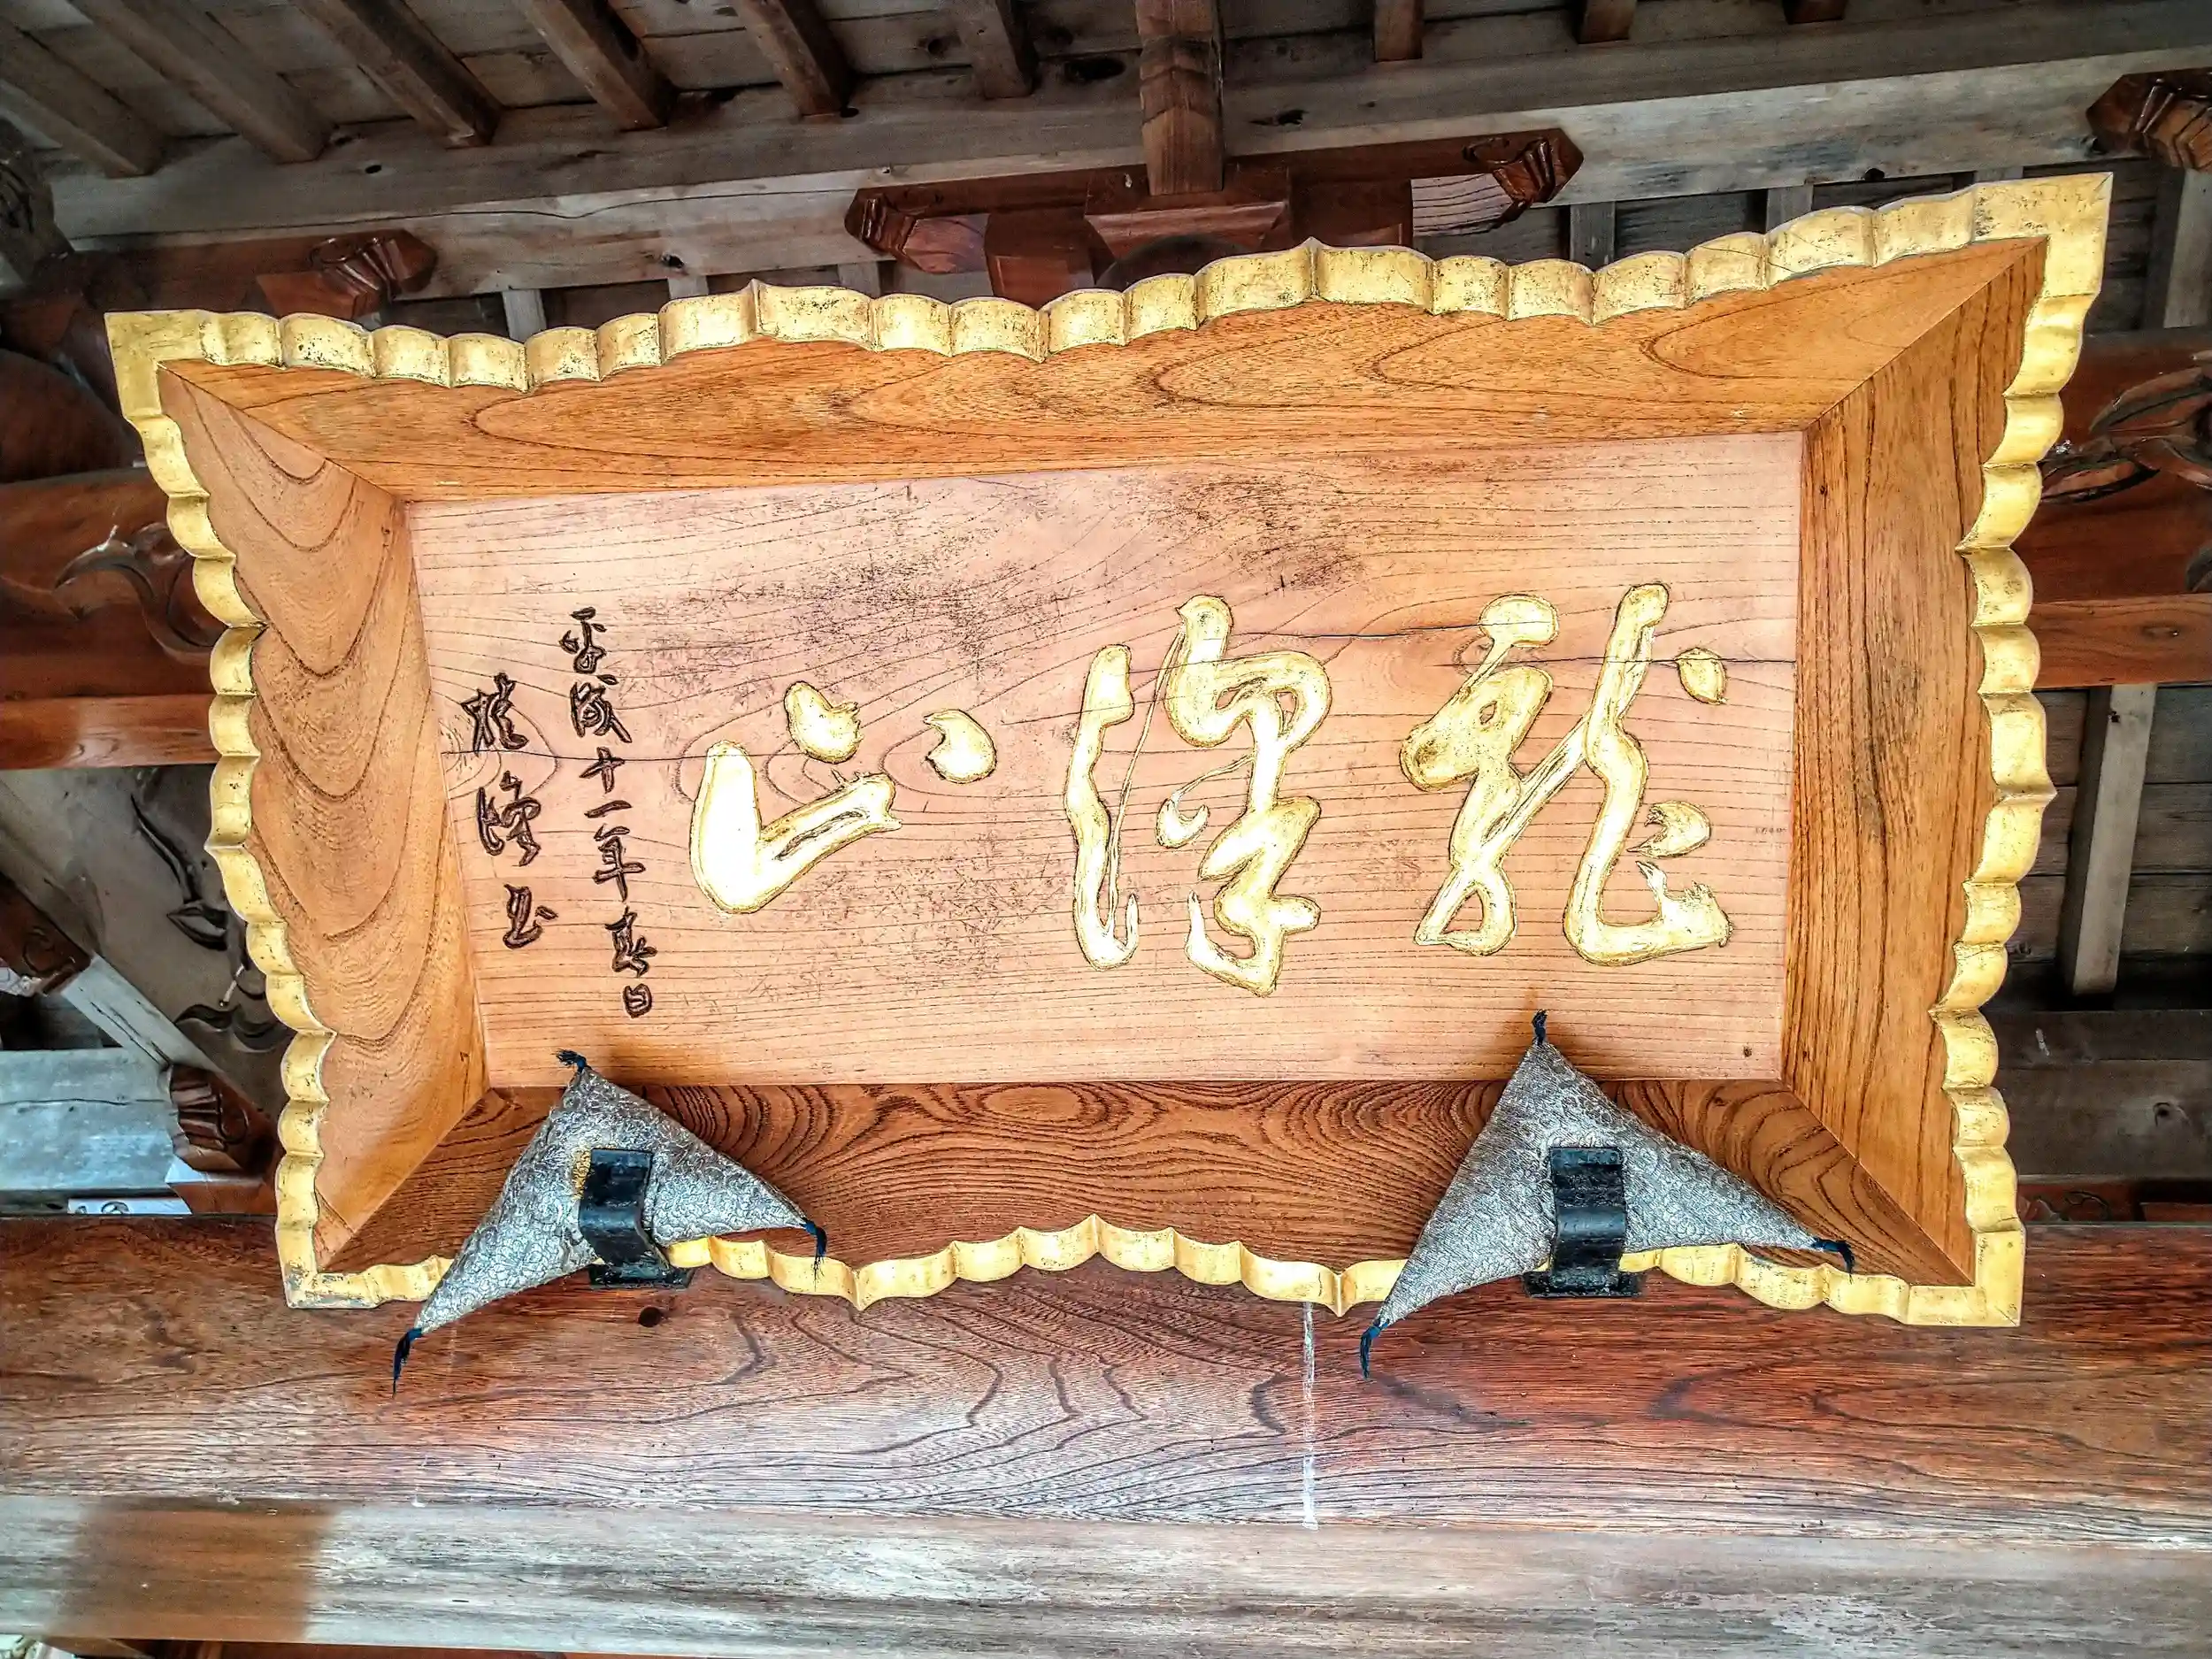 龍澤山
平成十一年春日
雅峰書